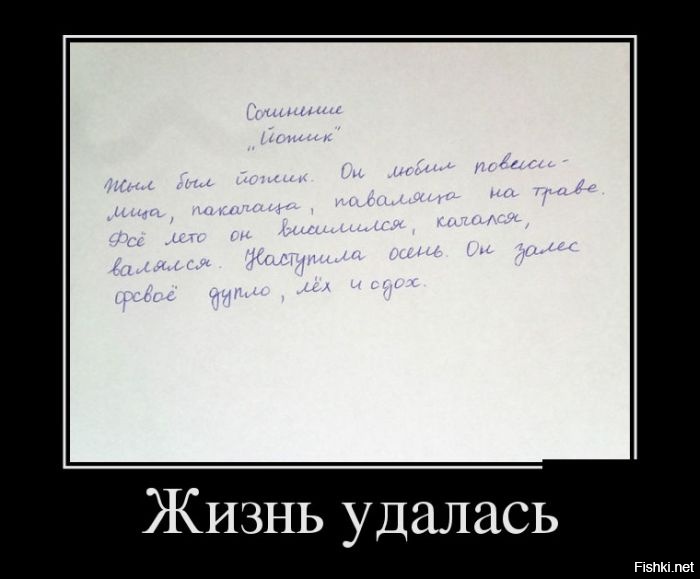 Сочинение
„Йожик"
Жыл был йожик. Он любил повеси-
лица, пакачаца, паваляца на траве.
Фсё лето он висилился, качался,
валялся. Наступила осень. Он залес
фсваё дупло, лёх и сдох.
Жизнь удалась
Fishki.net